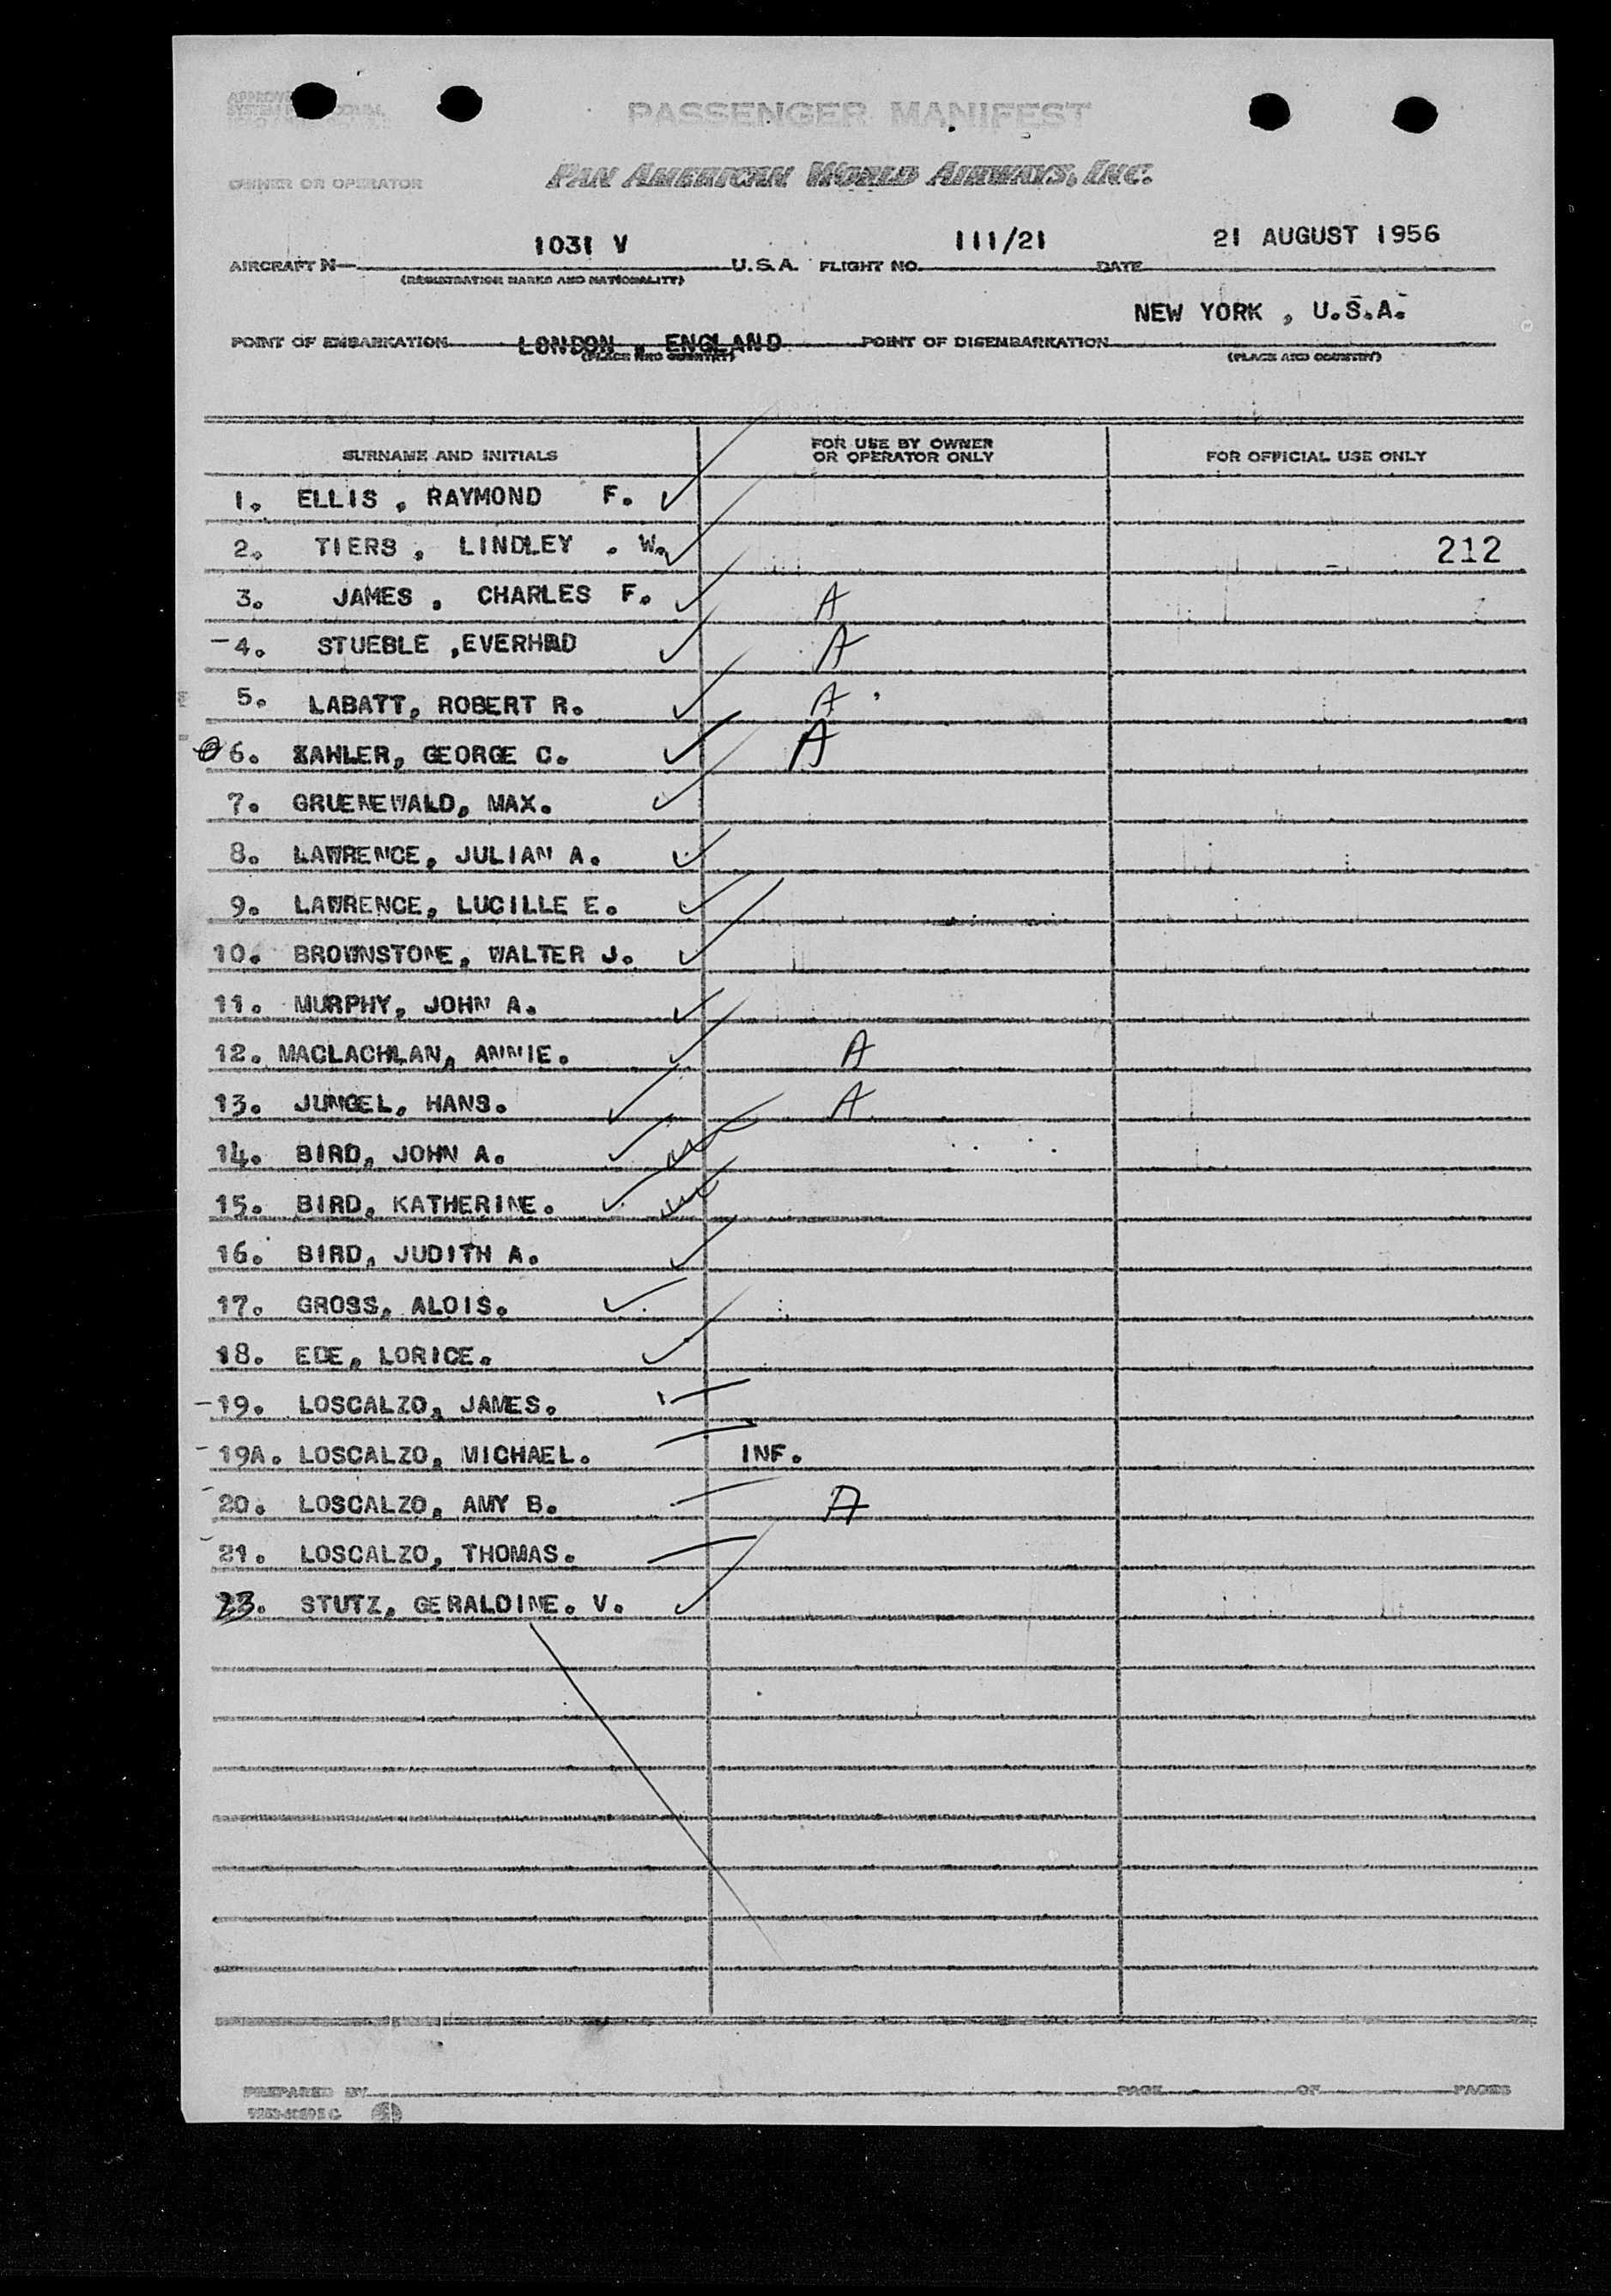 PASSENGER MANIFEST
OWNER OR OPERATOR
PAN AMERICAN WORLD AIRWAYS, INC.
AIRCRAFT N— 1031 V U.S.A. FLIGHT NO. 111/21 DATE 21 AUGUST 1956
(REGISTRATION MARKS AND NATIONALITY)
NEW YORK , U.S.A.
POINT OF EMBARKATION LONDON , ENGLAND POINT OF DISEMBARKATION
(PLACE AND COUNTRY) (PLACE AND COUNTRY)
SURNAME AND INITIALS FOR USE BY OWNER OR OPERATOR ONLY FOR OFFICIAL USE ONLY
1. ELLIS , RAYMOND F.
2. TIERS , LINDLEY . W. 212
3. JAMES , CHARLES F. A
-4. STUEBLE ,EVERHAD A
5. LABATT, ROBERT R. A
6. KAHLER, GEORGE C. A
7. GRUENEWALD, MAX.
8. LAWRENCE, JULIAN A.
9. LAWRENCE, LUCILLE E.
10. BROWNSTONE, WALTER J.
11. MURPHY, JOHN A.
12. MACLACHLAN, ANNIE. A
13. JUNGEL, HANS. A
14. BIRD, JOHN A.
15. BIRD, KATHERINE.
16. BIRD, JUDITH A.
17. GROSS, ALOIS.
18. EDE, LORICE.
-19. LOSCALZO, JAMES.
-19A. LOSCALZO, MICHAEL. INF.
20. LOSCALZO, AMY B. A
21. LOSCALZO, THOMAS.
23. STUTZ, GERALDINE. V.
PREPARED BY PAGE OF PAGES